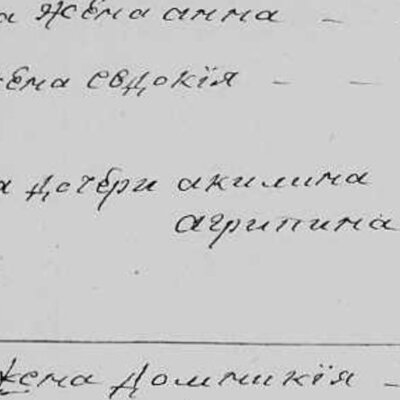 а жена анна –
жена евдокія – –
а дочери акилина
агрипина
жена домникія –